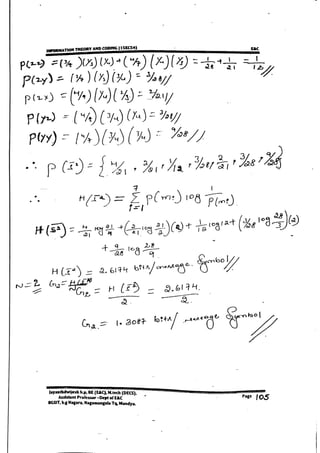 INFORMATION THEORY AND CODING (15EC54) E&C
P(zz) = (3/7)(1/3)(1/4) + (4/7)(1/4)(1/3) = 1/28 + 1/21 = 1/12 //
P(zy) = (3/7)(1/3)(3/4) = 3/28 //
P(zx) = (4/7)(1/4)(2/3) = 2/21 //
P(yz) = (3/7)(3/4)(1/3) = 3/28 //
P(yy) = (3/7)(3/4)(3/4) = 9/28 //
∴ P(s²) = { 4/21, 2/21, 1/12, 3/28, 2/21, 3/28, 9/28 }
∴ H(s²) = Σ i=1 7 p(mi) log 1/P(mi)
H(s²) = 4/21 log 21/4 + (2/21 log 21/2)(2) + 1/12 log 12 + (3/28 log 28/3)(2)
+ 9/28 log 28/9
H(s²) = 2.6174 bits/message symbol //
N=2 G₂ = H(s²)/2 = 2.6174/2
G₂ = 1.3087 bits/message symbol //
Assistant Professor - Dept of E&C
BGSIT, b.g Nagara, Nagamangala Tq, Mandya.
Page 105